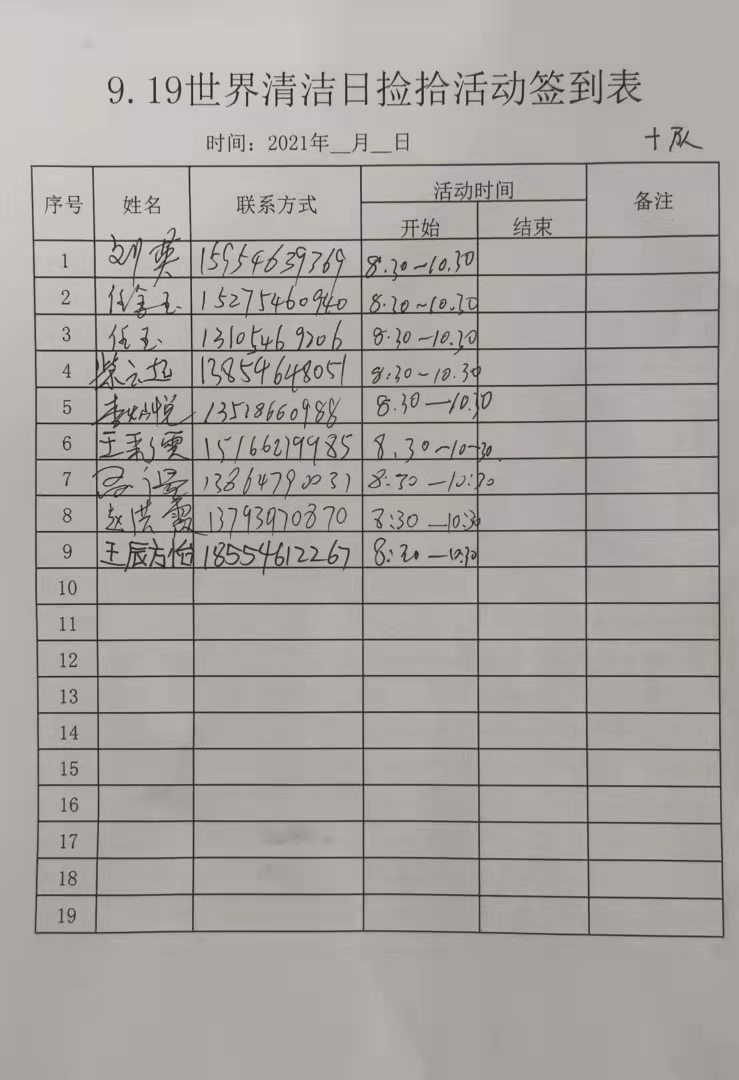 9.19世界清洁日捡拾活动签到表
时间：2021年__月__日
十队
序号 姓名 联系方式 活动时间 备注
开始 结束
1 刘英 15954639369 8.30—10.30
2 任 玉 15275460940 8.30~10.30
3 任玉 13105469206 8.30—10.30
4 13854648051 8:30—10.30
5 李 悦 13518660988 8.30—10.30
6 王彩霞 15166219985 8.30~10—30
7 13864790031 8:30—10:30
8 赵洪霞 13793970870 8:30—10:30
9 王辰方怡 18554612267 8:30—10:30
10
11
12
13
14
15
16
17
18
19